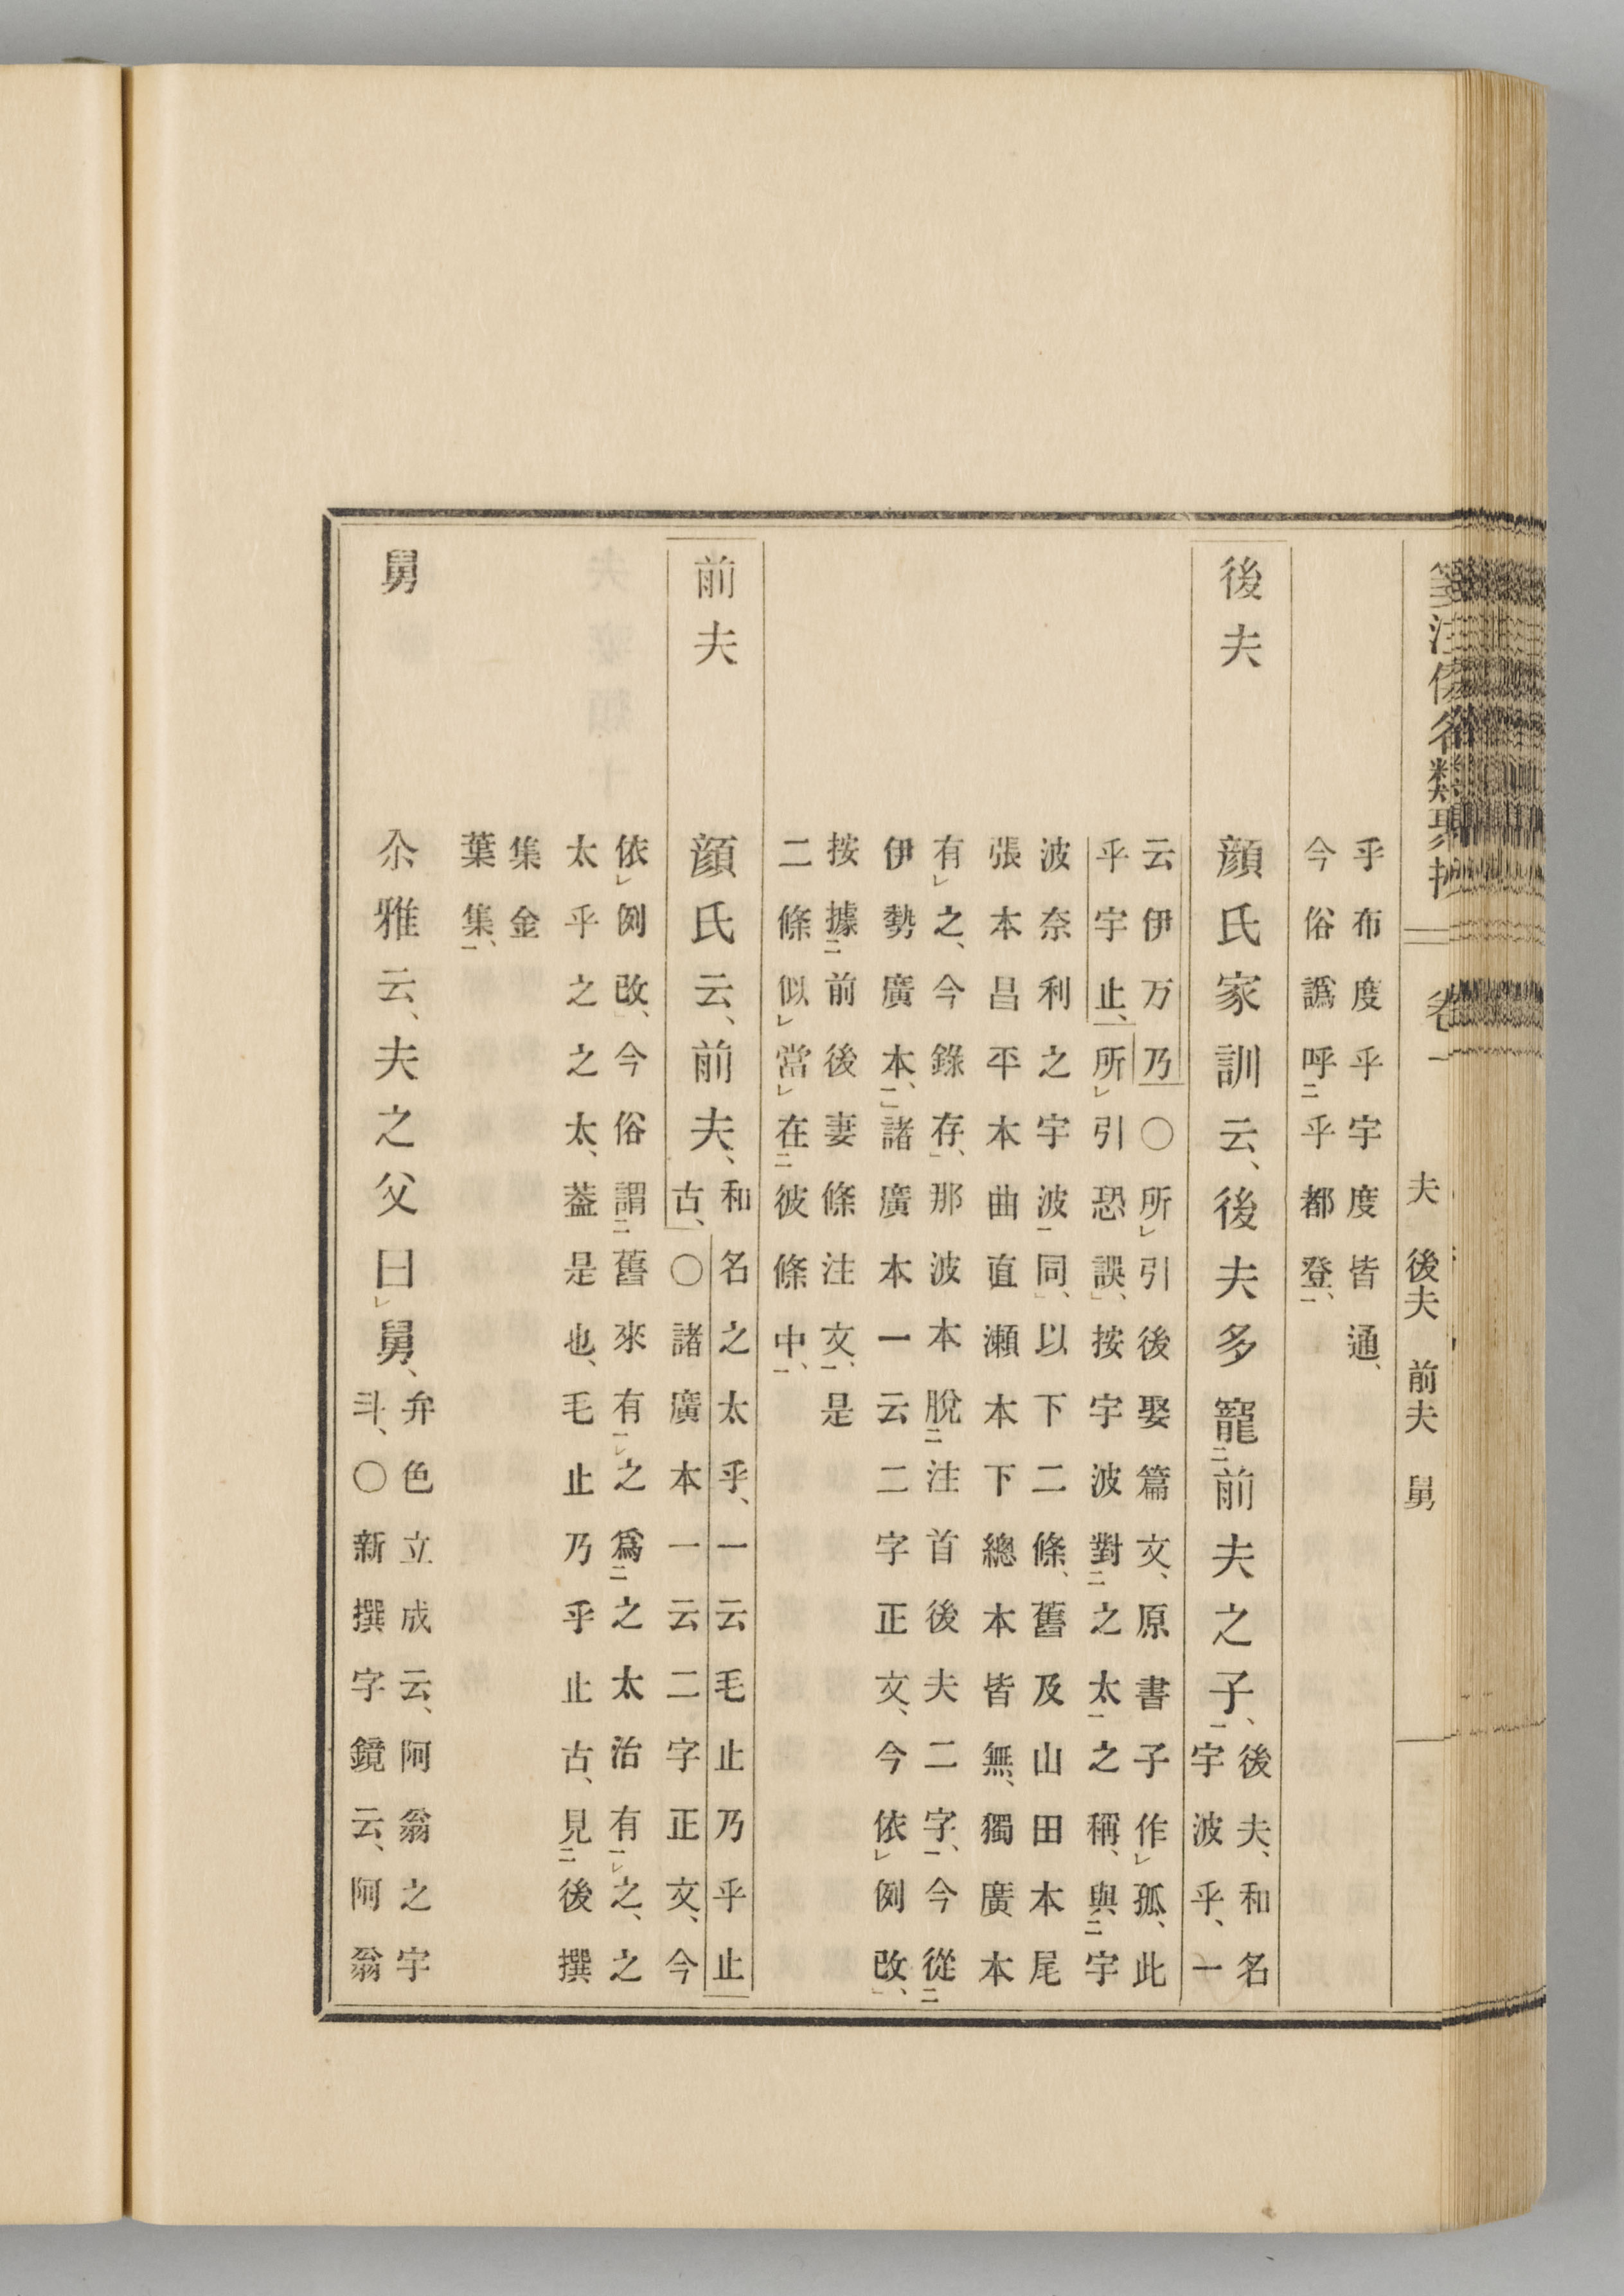 箋注倭名類聚抄 卷一 夫 後夫 前夫 舅
乎布度乎宇度皆通、
今俗譌呼二乎都登一、
後夫 顏氏家訓云、後夫多寵二前夫之子一、
後夫、和名
宇波乎、一
云伊万乃〇所レ引後娶篇文、原書子作レ孤、此
乎宇止、所レ引恐誤、按宇波對二之太一之稱、與二宇
波奈利之宇波一同、以下二條、舊及山田本尾
張本昌平本曲直瀨本下總本皆無、獨廣本
有レ之、今錄存、那波本脫二注首後夫二字一、今從二
伊勢廣本一、諸廣本一云二字正文、今依レ例改、
按據二前後妻條注文一、是
二條似レ當レ在二彼條中一、
前夫 顏氏云、前夫、
和名之太乎、一云毛止乃乎止
古、〇諸廣本一云二字正文、今
依レ例改、今俗謂二舊來有一レ之爲二之太治有一レ之、之
太乎之之太、葢是也、毛止乃乎止古、見二後撰
集金
葉集一、
舅 尒雅云、夫之父曰レ舅、
弁色立成云、阿翁之宇
斗、〇新撰字鏡云、阿翁